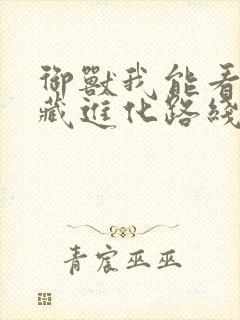 御獸我能看
藏進化路綫
青宸巫巫